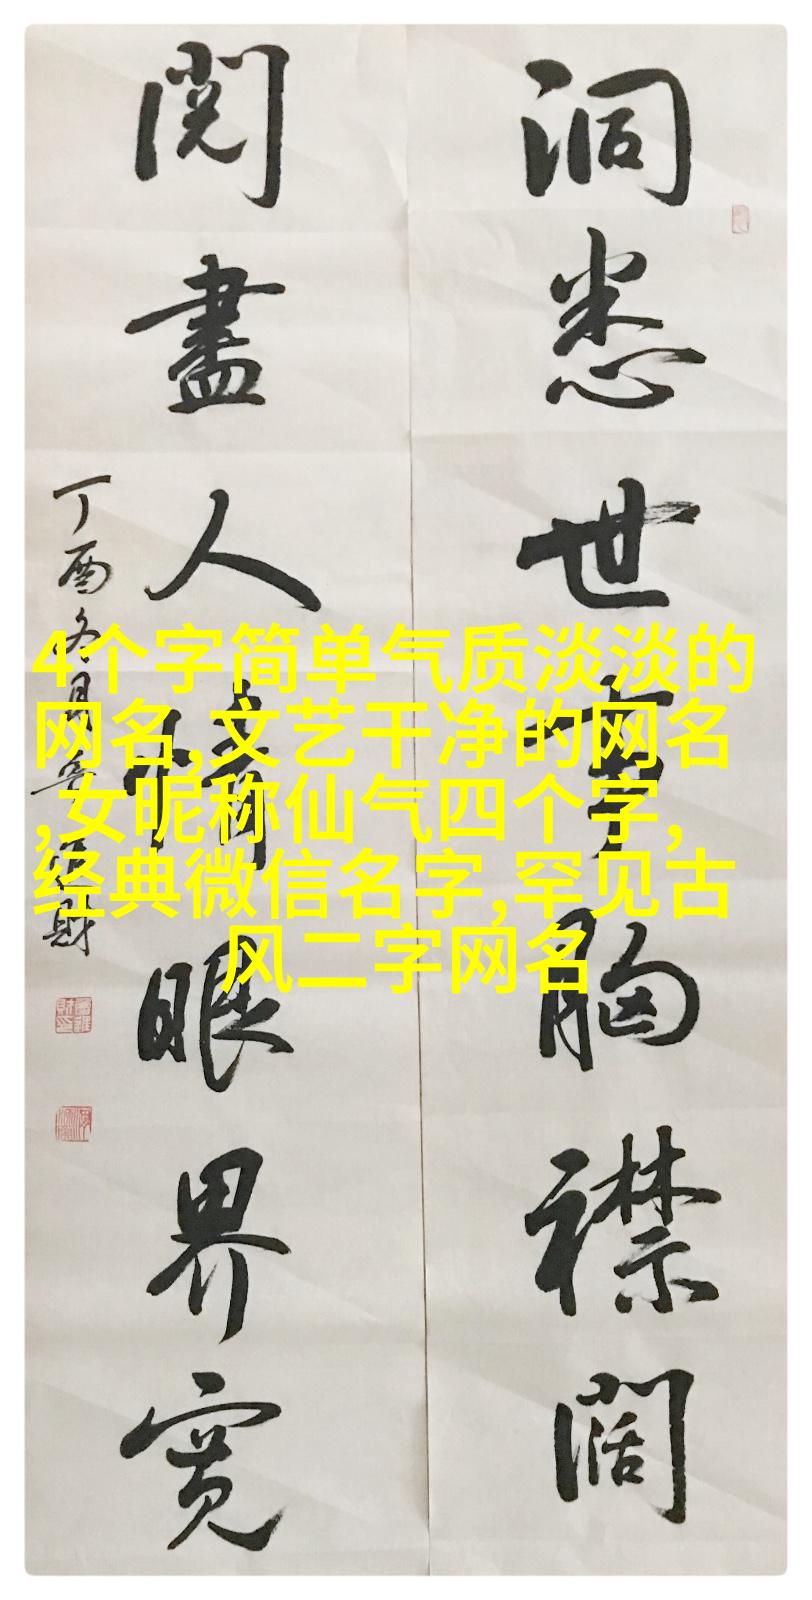 洞悉世事胸襟闊
閱盡人情眼界寬
丁酉冬月
財
4个字简单气质淡淡的
网名,文艺干净的网名
,女昵称仙气四个字,
经典微信名字,罕见古
风二字网名